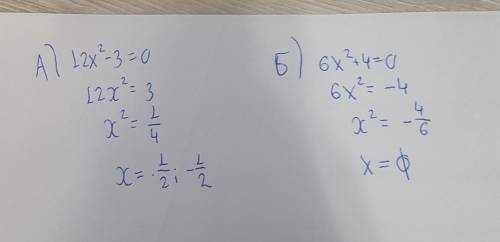 А) 12x²-3=0
12x² = 3
x² = 1/4
x = 1/2; -1/2
Б) 6x²+4=0
6x² = -4
x² = -4/6
x = ϕ